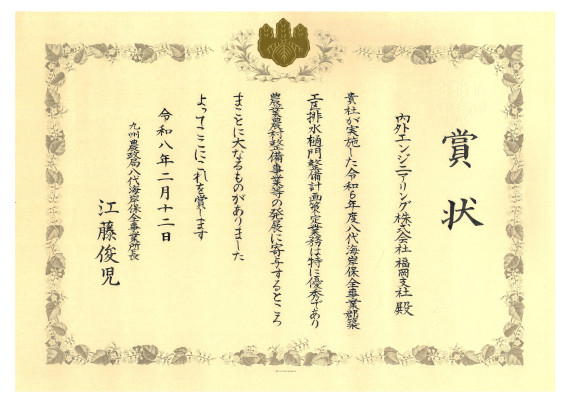 賞状
内外エンジニアリング株式会社 福岡支社 殿
貴社が実施した令和6年度八代海岸保全事業郡築
工区排水樋門整備計画策定業務は特に優秀であり
農業農村整備事業等の発展に寄与するところ
まことに大なるものがありました
よってここにこれを賞します
令和八年二月十二日
九州農政局八代海岸保全事業所長
江藤俊児